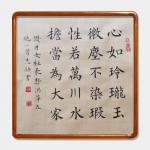 心如玲瓏玉
微塵不染瑕
性若萬川水
擔當為大家